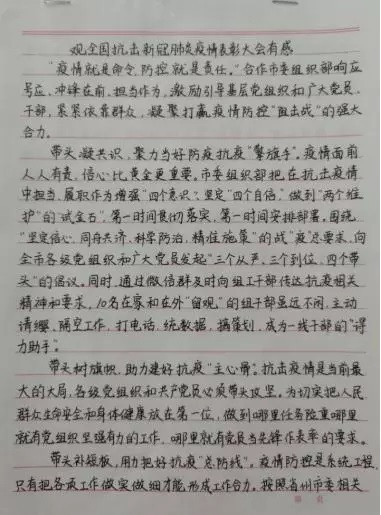 观全国抗击新冠肺炎疫情表彰大会有感
“疫情就是命令，防控就是责任。”合作市委组织部响应
号召、冲锋在前、担当作为，激励引导基层党组织和广大党员、
干部，紧紧依靠群众，凝聚打赢疫情防控“阻击战”的强大
合力。
带头凝共识，聚力当好防疫抗疫“擎旗手”。疫情面前
人人有责，信心比黄金更重要。市委组织部把在抗击疫情
中担当、履职作为增强“四个意识”、坚定“四个自信”、做到“两个维
护”的“试金石”，第一时间贯彻落实，第一时间安排部署。围绕
“坚定信心、同舟共济、科学防治、精准施策”的战“疫”总要求，向
全市各级党组织和广大党员发起“三个从严、三个到位、四个带
头”的倡议。同时，通过微信群及时向组工干部传达抗疫相关
精神和要求，10名在家和在外“留观”的组干部虽远不闲，主动
请缨、隔空工作，打电话、统数据、搞策划，成为一线干部的“得
力助手”。
带头树旗帜，助力建好抗疫“主心骨”。抗击疫情是当前最
大的大局，各级党组织和共产党员必须带头攻坚。为切实把人民
群众生命安全和身体健康放在第一位，做到哪里任务险重哪里
就有党组织坚强有力的工作、哪里就有党员当先锋作表率的要求。
带头补短板，用力把好抗疫“总防线”。疫情防控是系统工程，
只有把各项工作做实做细才能形成工作合力。按照省州市委相关
第 页